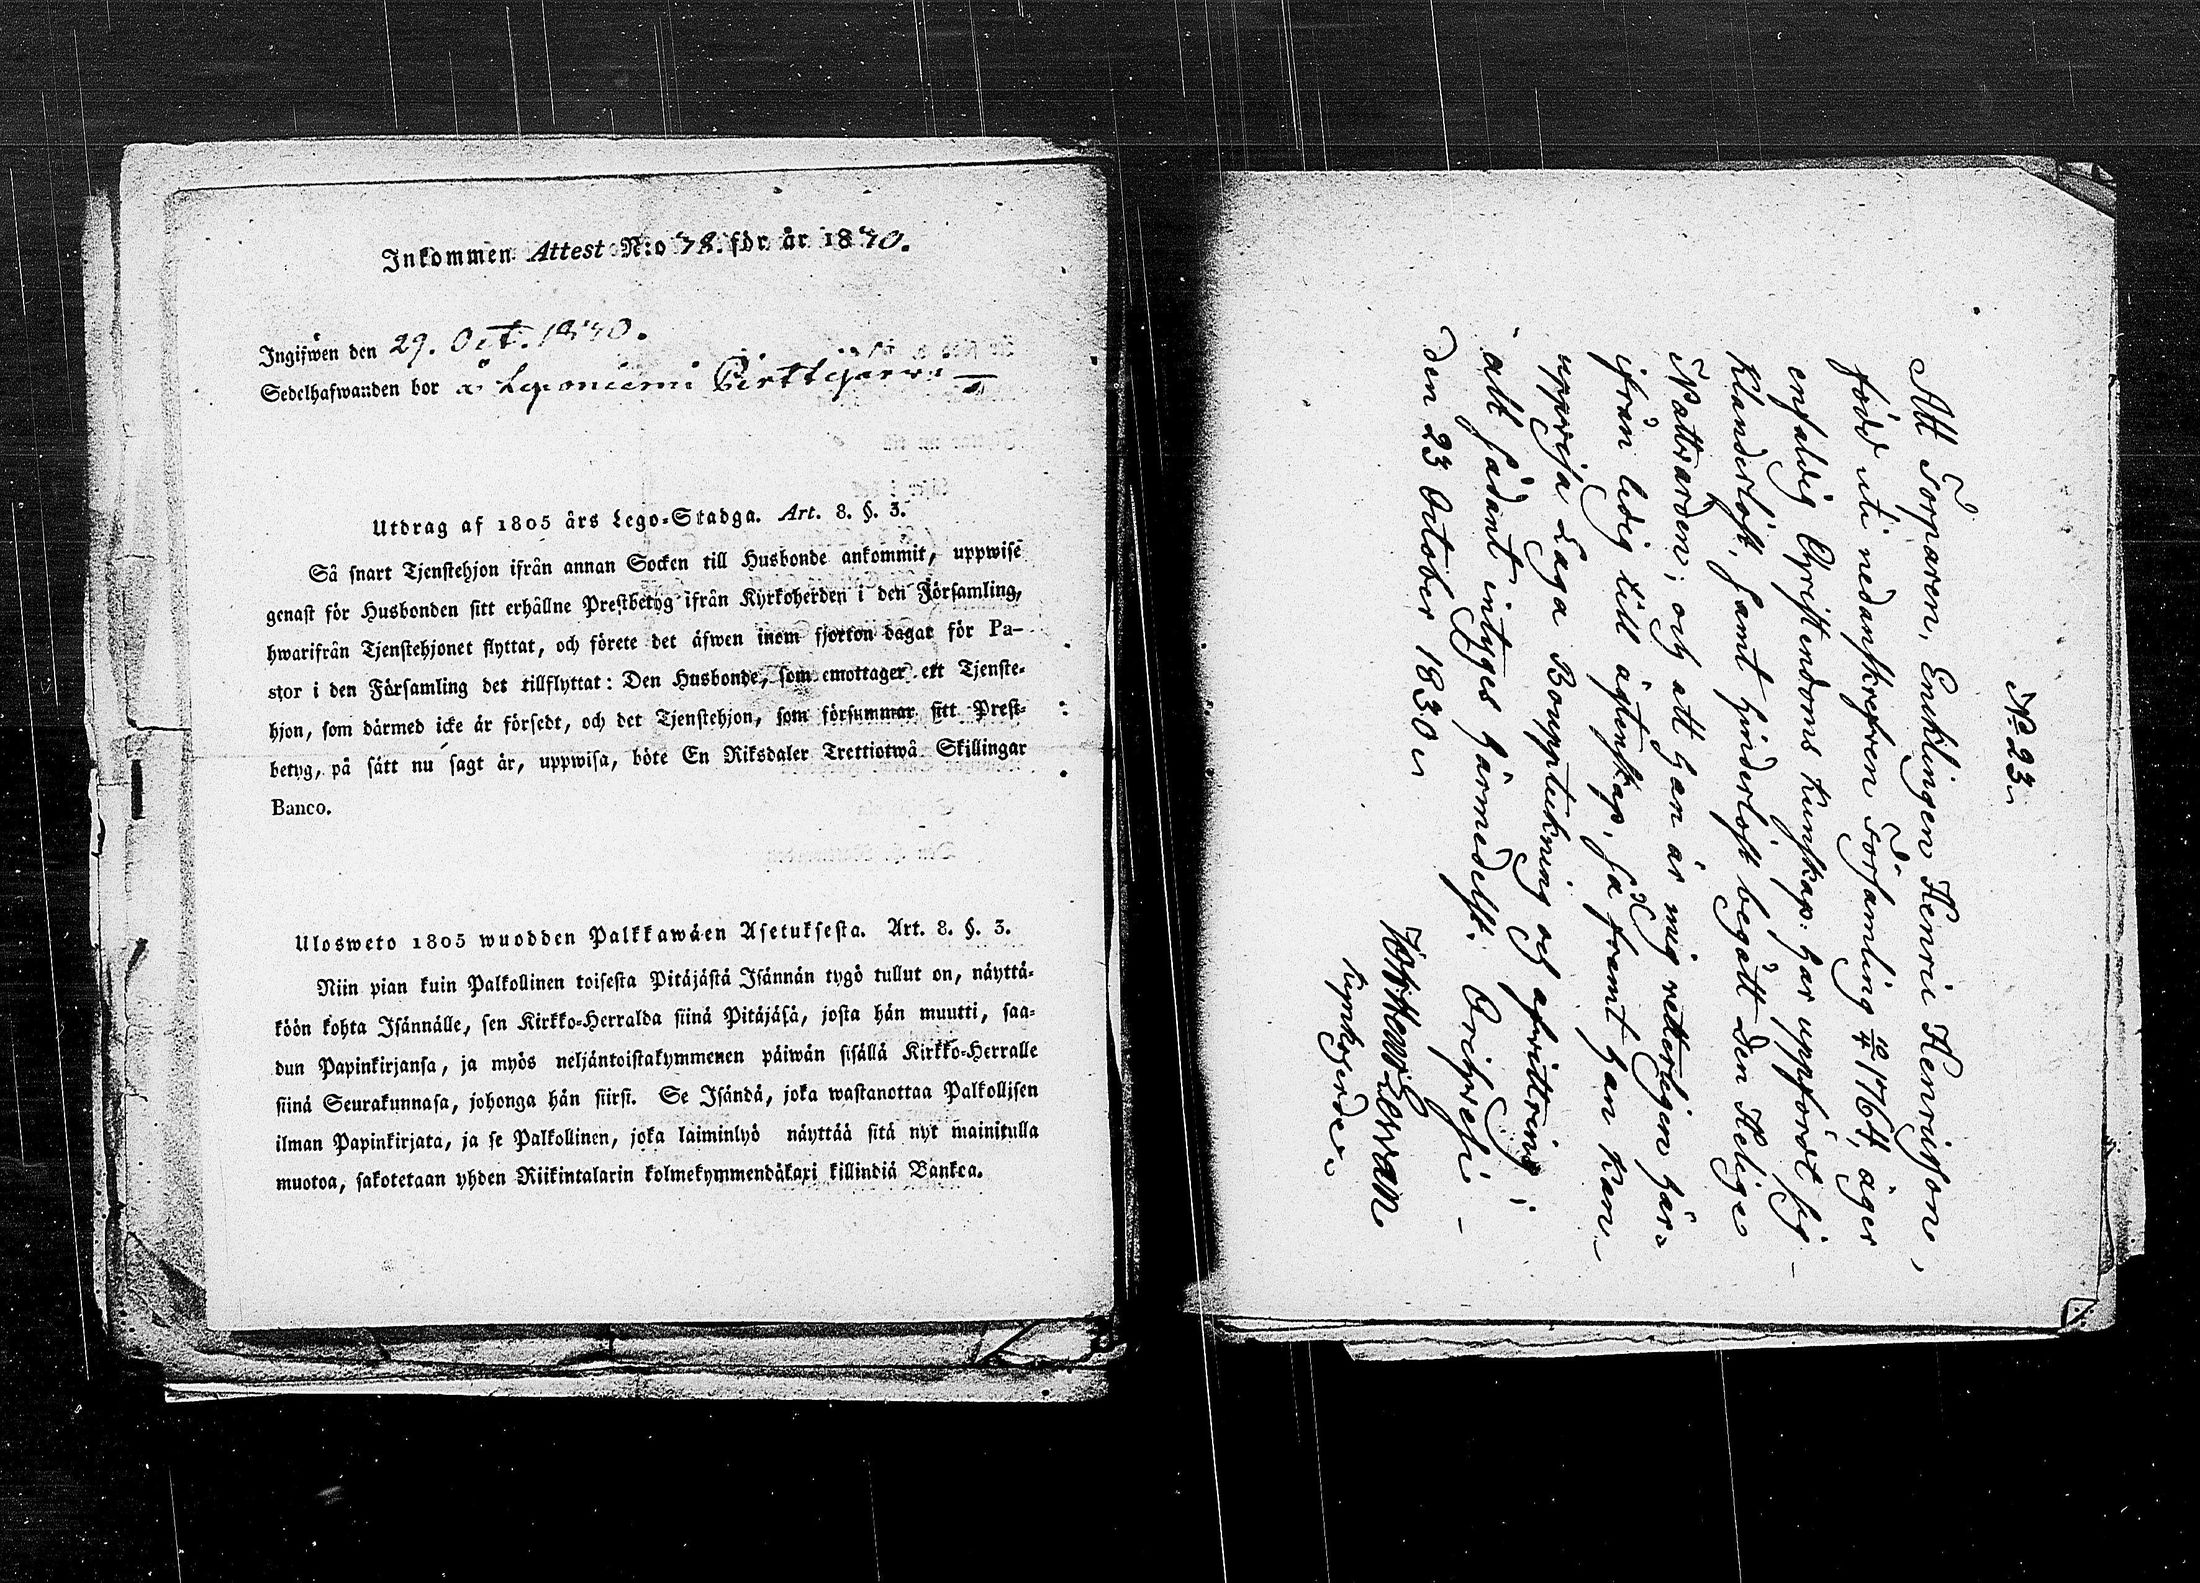 Inkommen Attest N:o 78. för år 1830.
Ingifwen den 29. Oct. 1830.
Sedelhafwanden bor å Leponiemi Pirttijärwi
Utdrag af 1805 års Lego-Stadga. Art. 8. §. 3.
Så snart Tjenstehjon ifrån annan Socken till Husbonde ankommit, uppwise
genast för Husbonden sitt erhållne Prestbetyg ifrån Kyrkoherden i den Församling,
hwarifrån Tjenstehjonet flyttat, och förete det äfwen inom fjorton dagar för Pa-
stor i den Församling det tillflyttat: Den Husbonde, som emottager ett Tjenste-
hjon, som därmed icke är försedt, och det Tjenstehjon, som försummar sitt Prest-
betyg, på sätt nu sagt är, uppwisa, böte En Riksdaler Trettiotwå Skillingar
Banco.
Ulosweto 1805 wuodden Palkkawäen Asetuksesta. Art. 8. §. 3.
Niin pian kuin Palkollinen toisesta Pitäjästä Isännän tygö tullut on, näyttä-
köön kohta Isännälle, sen Kirkko-Herralda siinä Pitäjäsä, josta hän muutti, saa-
dun Papinkirjansa, ja myös neljäntoistakymmenen päiwän sisällä Kirkko-Herralle
siinä Seurakunnasa, johonga hän siirsi. Se Isändä, joka wastanottaa Palkollisen
ilman Papinkirjata, ja se Palkollinen, joka laiminlyö näyttää sitä nyt mainitulla
muotoa, sakotetaan yhden Riikintalarin kolmekymmendäkaxi killindiä Bankea.
No 23
Att Torparen, Enklingen Henric Henricsson,
född uti nedanskrefven Församling 10/4 1764, äger
enfaldig Christendoms kunskap: har uppfördt sig
klanderlöst, samt hinderlöst begått Den Helige
Nattvarden; och att han är mig vetterligen här-
ifrån ledig till ägtenskap, så framt han kan
uppvisa Laga Bouppteckning och afvittring;
allt sådant intyges härmedelst. Oripesi
den 23 October 1830
Lewan
Kyrkoherde